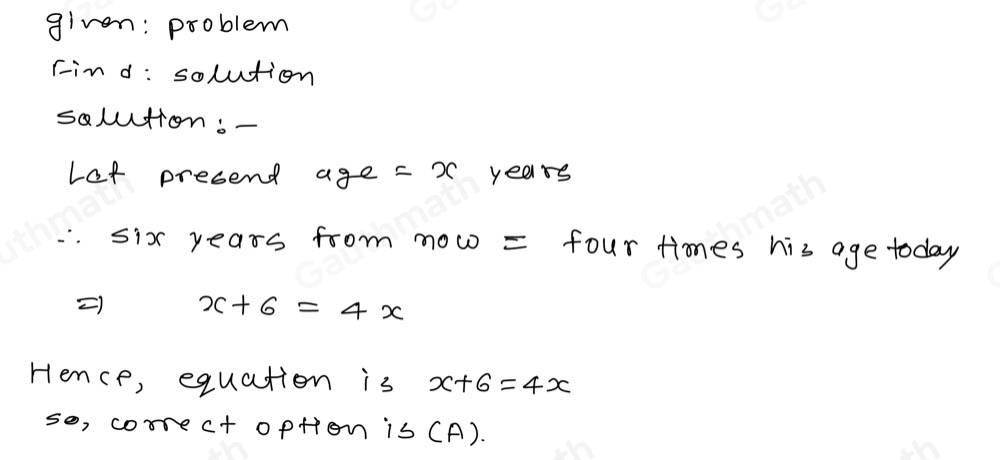 given: problem
Find: solution
solution:-
Let presend age = x years
∴ six years from now = four times his age today
⇒ x+6 = 4x
Hence, equation is x+6=4x
so, correct option is (A).